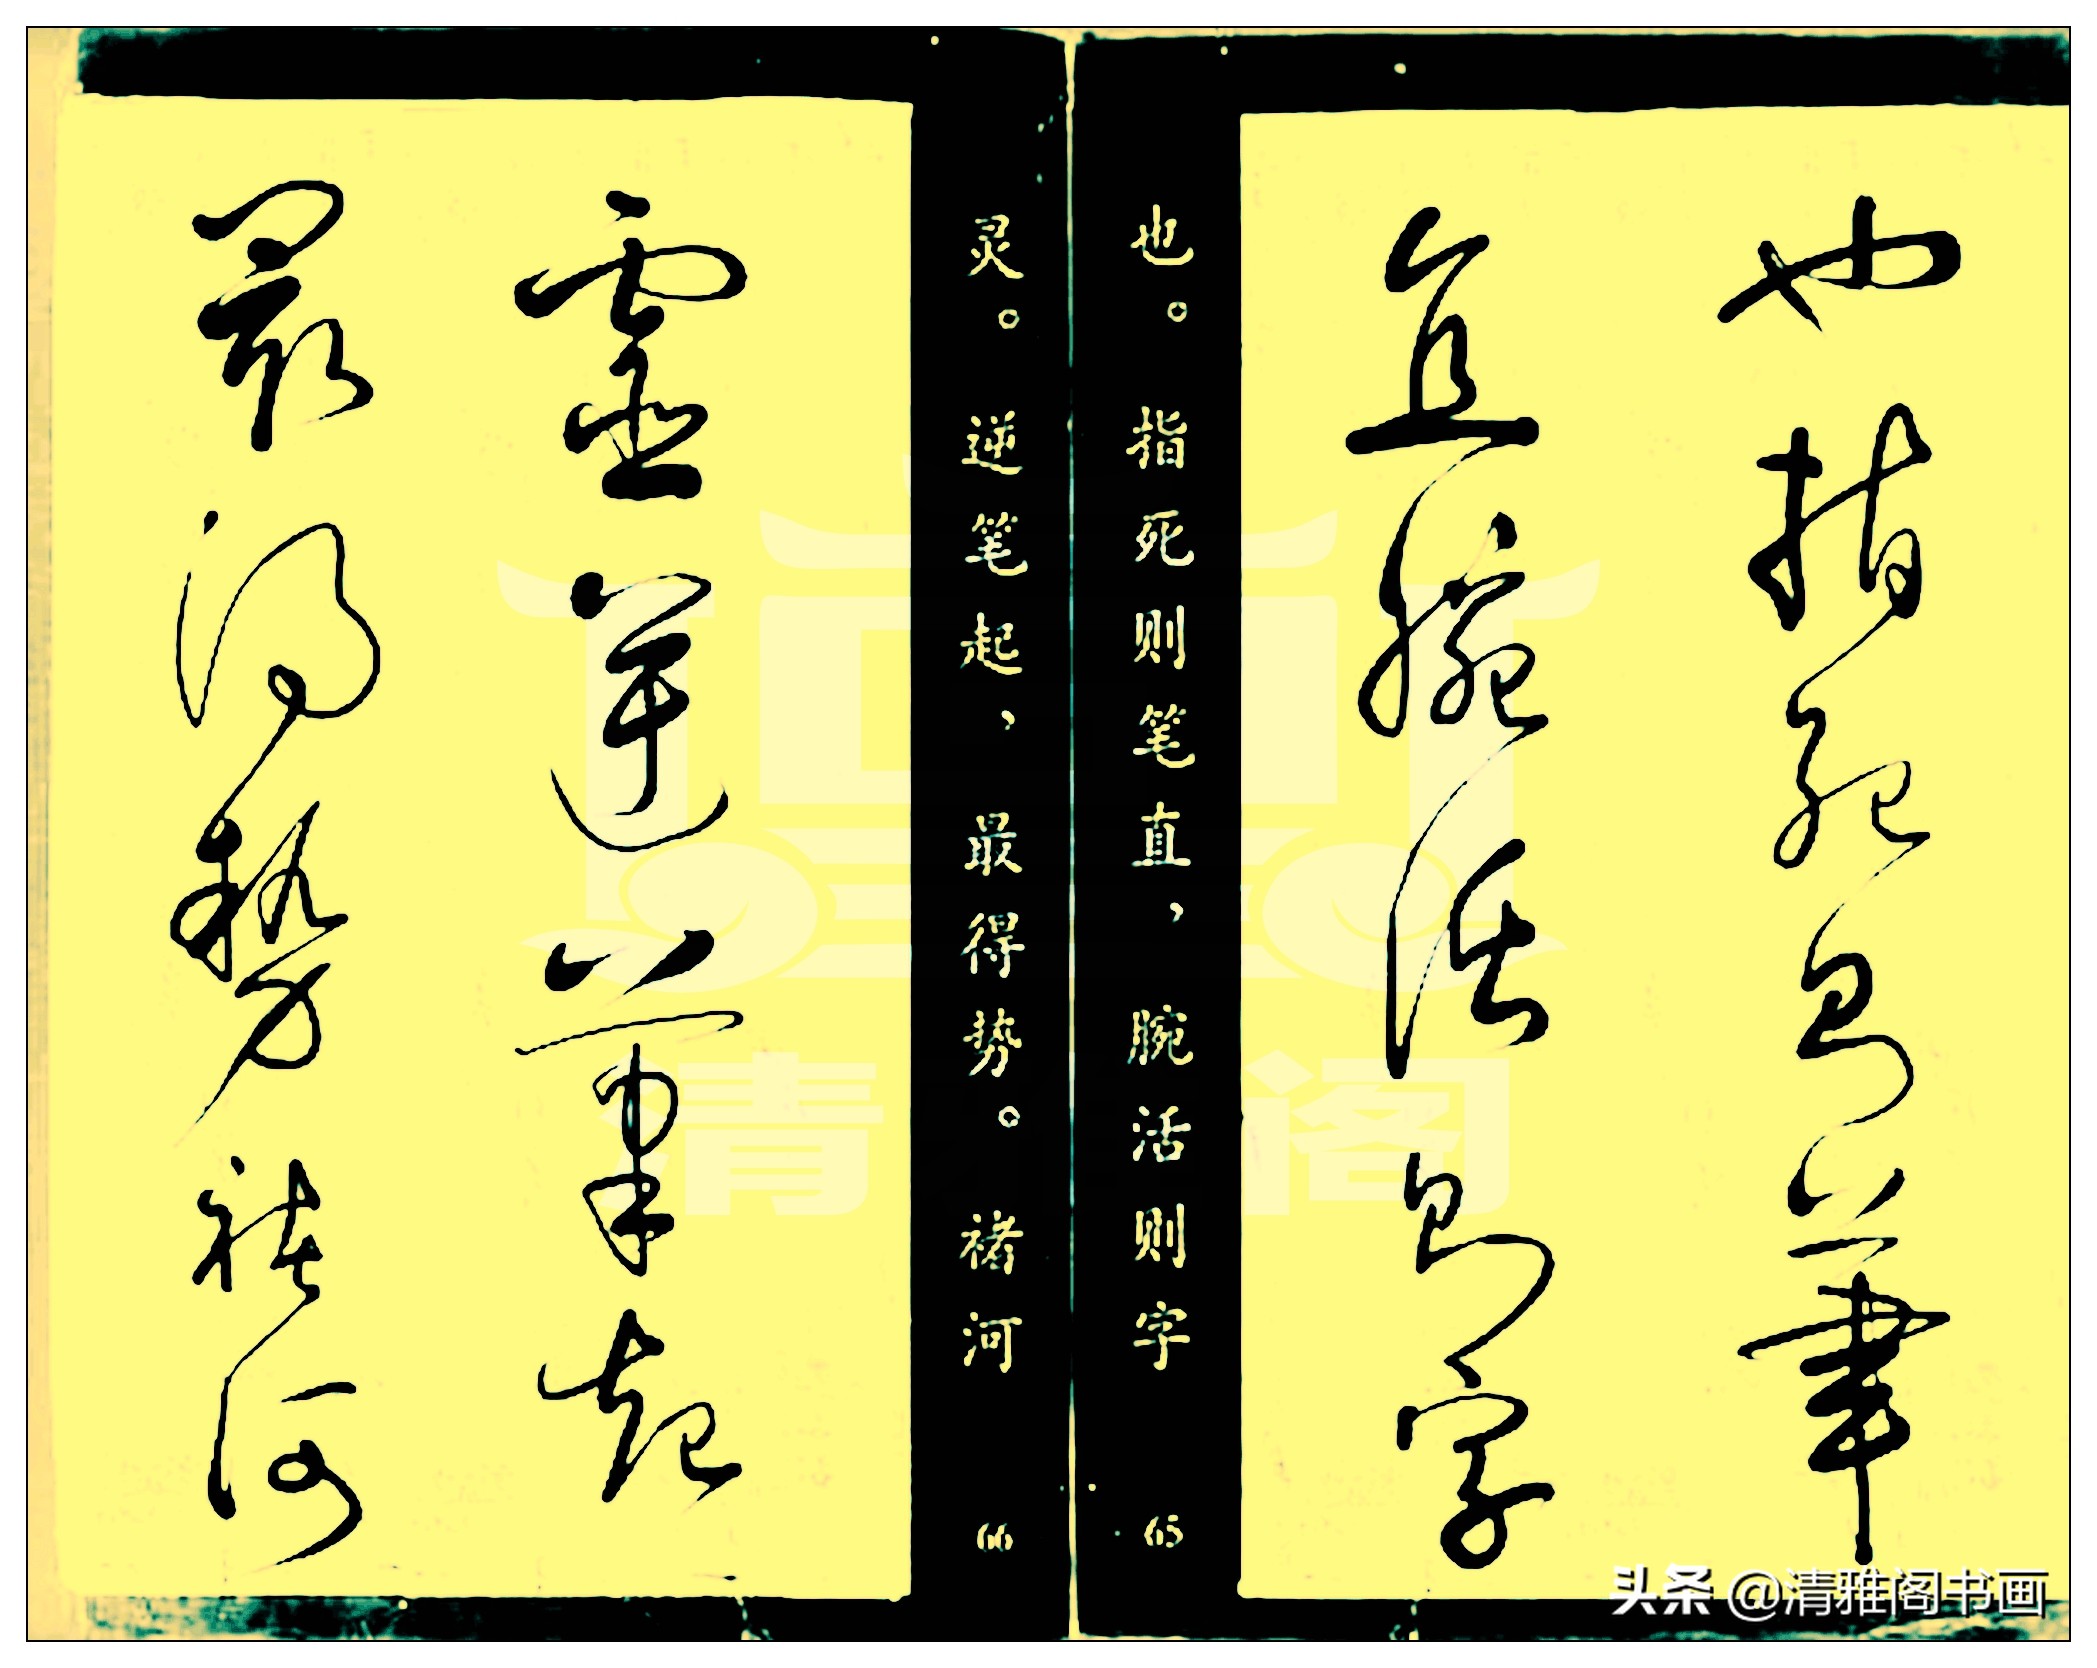 也指死则筆
直腕活则字
也。指死则笔直，腕活则字
65
灵。逆笔起，最得势。褚河
66
靈逆筆起
最得势褚河
清雅阁
头条 @清雅阁书画